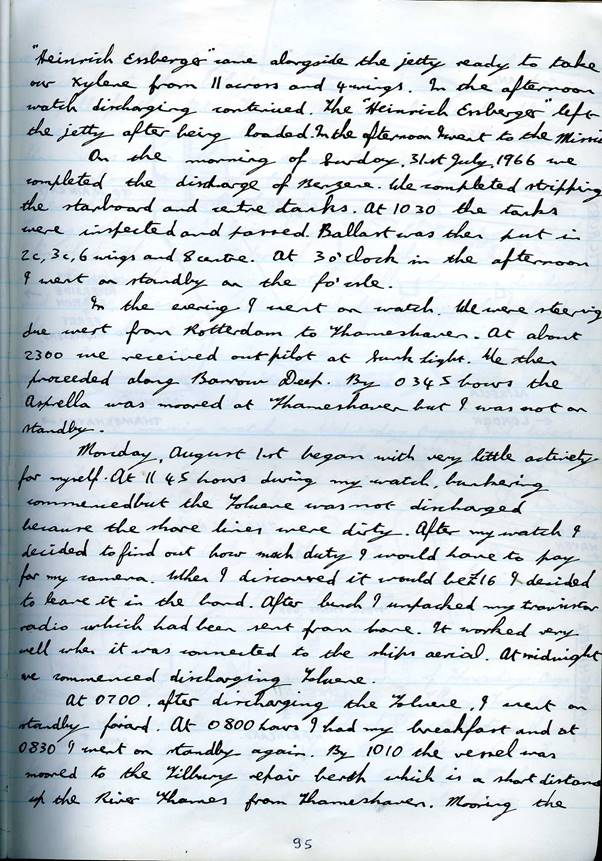 "Heinrich Essberger" came alongside the jetty ready to take
our Xylene from 11 across and 4 wings. In the afternoon
watch discharging continued. The "Heinrich Essberger" left
the jetty after being loaded. In the afternoon I went to the Missi
On the morning of Sunday, 31st July, 1966 we
completed the discharge of Benzene. We completed stripping
the starboard and centre tanks. At 1030 the tanks
were inspected and passed. Ballast was then put in
2c, 3c, 6 wings and 8 centre. At 3 o'clock in the afternoon
I went on standby on the fo'csle.
In the evening I went on watch. We were steering
due west from Rotterdam to Thameshaven. At about
2300 we received out pilot at Sunk Light. We then
proceeded along Barrow Deep. By 0345 hours the
Asprella was moored at Thameshaven but I was not on
standby.
Monday, August 1st began with very little activity
for myself. At 1145 hours during my watch, bunkering
commenced but the Toluene was not discharged
because the shore lines were dirty. After my watch I
decided to find out how much duty I would have to pay
for my camera. When I discovered it would be £16 I decided
to leave it in the bond. After lunch I unpacked my transistor
radio which had been sent from home. It worked very
well when it was connected to the ships aerial. At midnight
we commenced discharging Toluene.
At 0700, after discharging the Toluene, I went on
standby forard. At 0800 hours I had my breakfast and at
0830 I went on standby again. By 1010 the vessel was
moored to the Tilbury repair berth which is a short distance
up the River Thames from Thameshaven. Mooring the
95